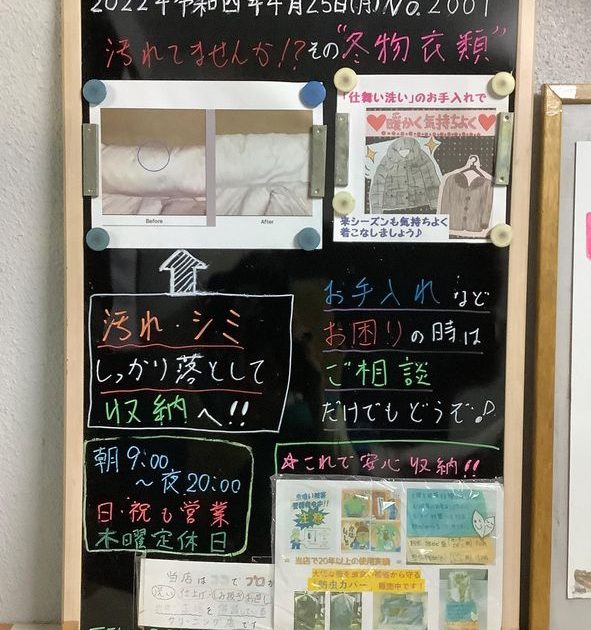 2022年令和四年4月25日(月)No.2001
汚れてませんか!?その"冬物衣類"
「仕舞い洗い」のお手入れで
暖かく気持ちよく
Before
After
来シーズンも気持ちよく
着こなしましょう♪
汚れ・シミ
しっかり落として
収納へ!!
お手入れなど
お困りの時は
ご相談
だけでもどうぞ♪
朝9:00
〜夜20:00
日・祝も営業
木曜定休日
☆これで安心収納!!
当店で20年以上の使用実績
大切な服を
から守る
防虫カバー
販売中です!
当店は
で プロが
洗い
仕上げ
クリーニング店です